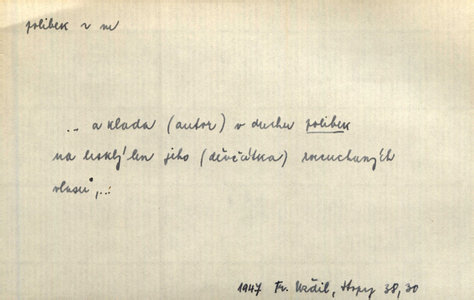 polibek z m
.. a klada (autor) v duchu polibek
na lesklý len jeho (děvčátka) rozcuchaných
vlasů,..
1947 Fr. Uždil, Stopy 38, 30